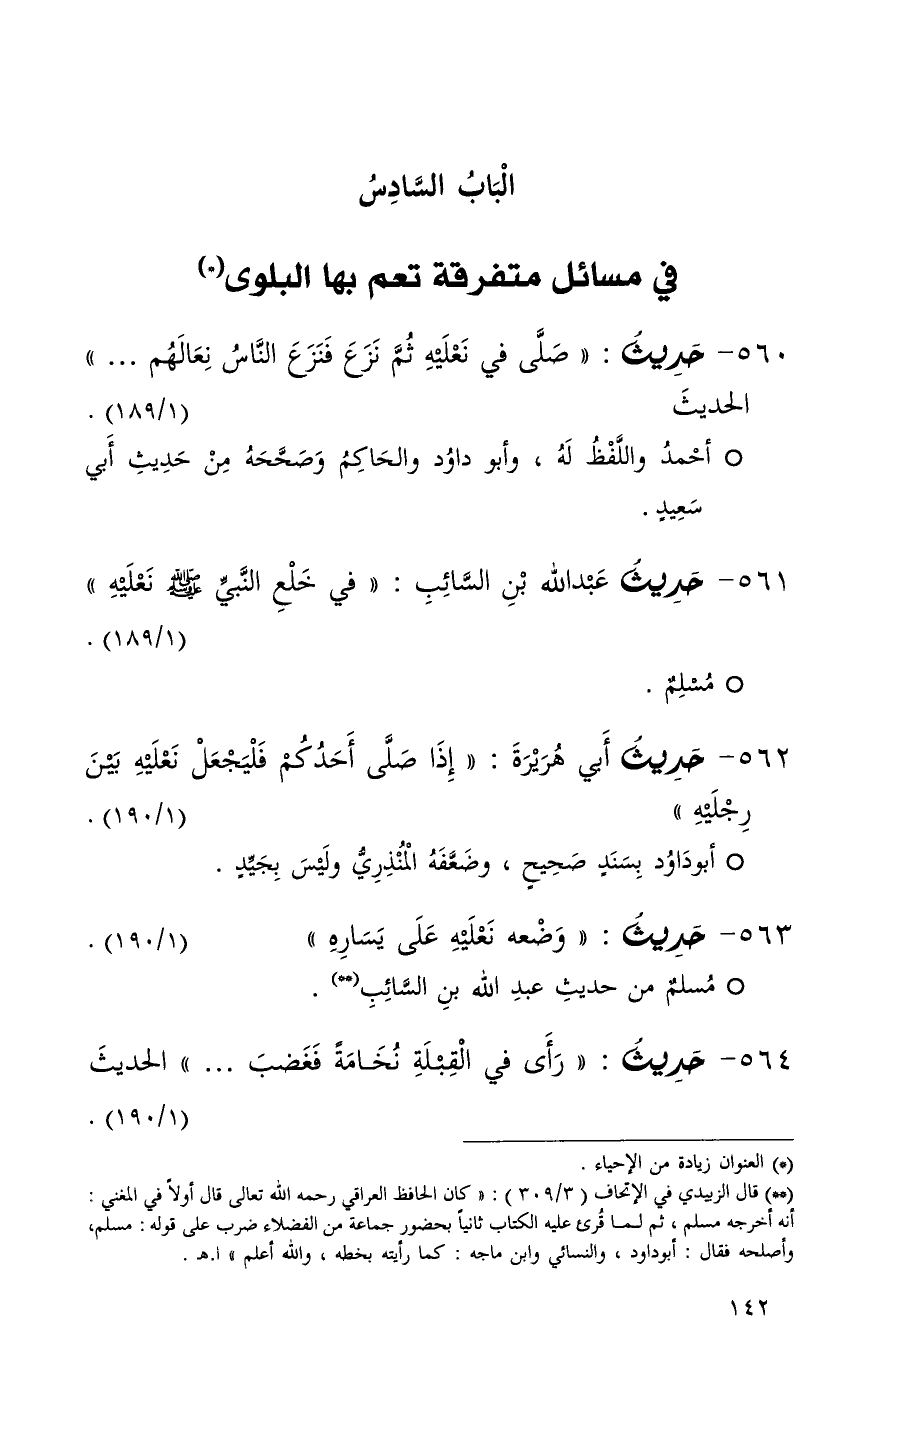 الْبَابُ السَّادِسُ
في مسائل متفرقة تعم بها البلوى(*)
٥٦٠- حَدِيثُ : « صَلَّى في نَعْلَيْهِ ثُمَّ نَزَعَ فَنَزَعَ النَّاسُ نِعَالَهُم ... »
الحديثَ (١٨٩/١) .
○ أحْمدُ واللَّفْظُ لَهُ ، وأبو داوُد والحَاكِمُ وَصَحَّحَهُ مِنْ حَدِيثِ أَبي
سَعِيدٍ .
٥٦١- حَدِيثُ عَبْدالله بْنِ السَّائِبِ : « في خَلْعِ النَّبيِّ ﷺ نَعْلَيْهِ »
(١٨٩/١) .
○ مُسْلِمٌ .
٥٦٢- حَدِيثُ أَبي هُرَيْرَةَ : « إِذَا صَلَّى أَحَدُكُمْ فَلْيَجْعَلْ نَعْلَيْهِ بَيْنَ
رِجْلَيْهِ » (١٩٠/١) .
○ أبودَاوُد بِسَنَدٍ صَحِيحٍ ، وضَعَّفَهُ الْمُنْذِرِيُّ ولَيْسَ بِجَيِّدٍ .
٥٦٣- حَدِيثُ : « وَضْعه نَعْلَيْهِ عَلَى يَسَارِهِ » (١٩٠/١) .
○ مُسلمٌ من حديثِ عبدِ الله بنِ السَّائِبِ(**) .
٥٦٤- حَدِيثُ : « رَأَى في الْقِبْلَةِ نُخَامَةً فَغَضبَ ... » الحديثَ
(١٩٠/١) .
(*) العنوان زيادة من الإحياء .
(**) قال الزبيدي في الإتحاف ( ٣٠٩/٣ ) : « كان الحافظ العراقي رحمه الله تعالى قال أولاً في المغني :
أنه أخرجه مسلم ، ثم لـمـا قُرئ عليه الكتاب ثانياً بحضور جماعة من الفضلاء ضرب على قوله : مسلم،
وأصلحه فقال : أبوداود ، والنسائي وابن ماجه : كما رأيته بخطه ، والله أعلم » ا.هـ .
١٤٢